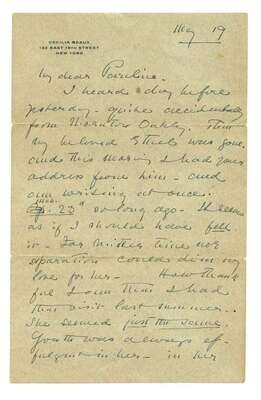 CECILIA BEAUX,
132 EAST 19TH STREET
NEW YORK
May 19
My dear Pauline.
I heard a day before
yesterday - quite accidentally
from Thornton Oakley, That
my beloved Ethel was gone,
and this morning I had your
address from him - and
am writing at once.
23d so long ago - It seems
as if I should have felt
it - For neither time nor
separation could dim my
love for her - How thank
ful I am that I had
that visit last summer..
She seemed just the same.
Youth was always ef-
fulgent in her - in her